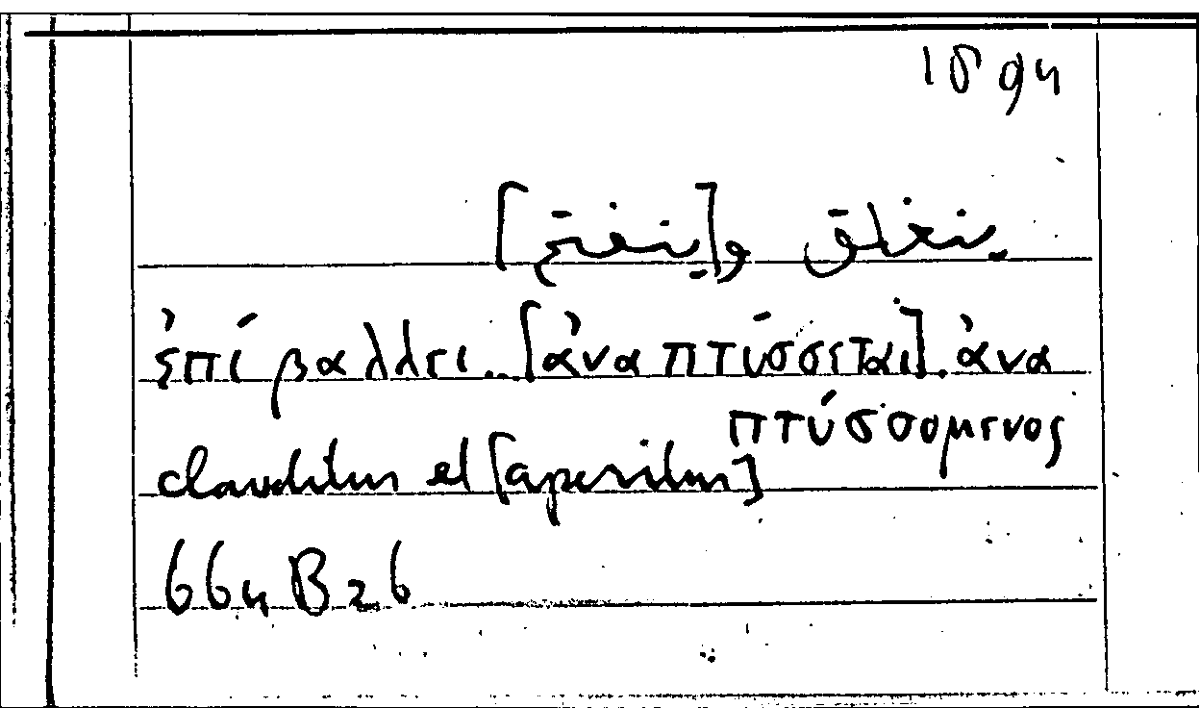 1894
ينغلق و[ينفتح]
ἐπιβάλλει..[ἀναπτύσσεται].ἀνα
πτύσσομενος
clauditur et [aperitur]
664 B 26